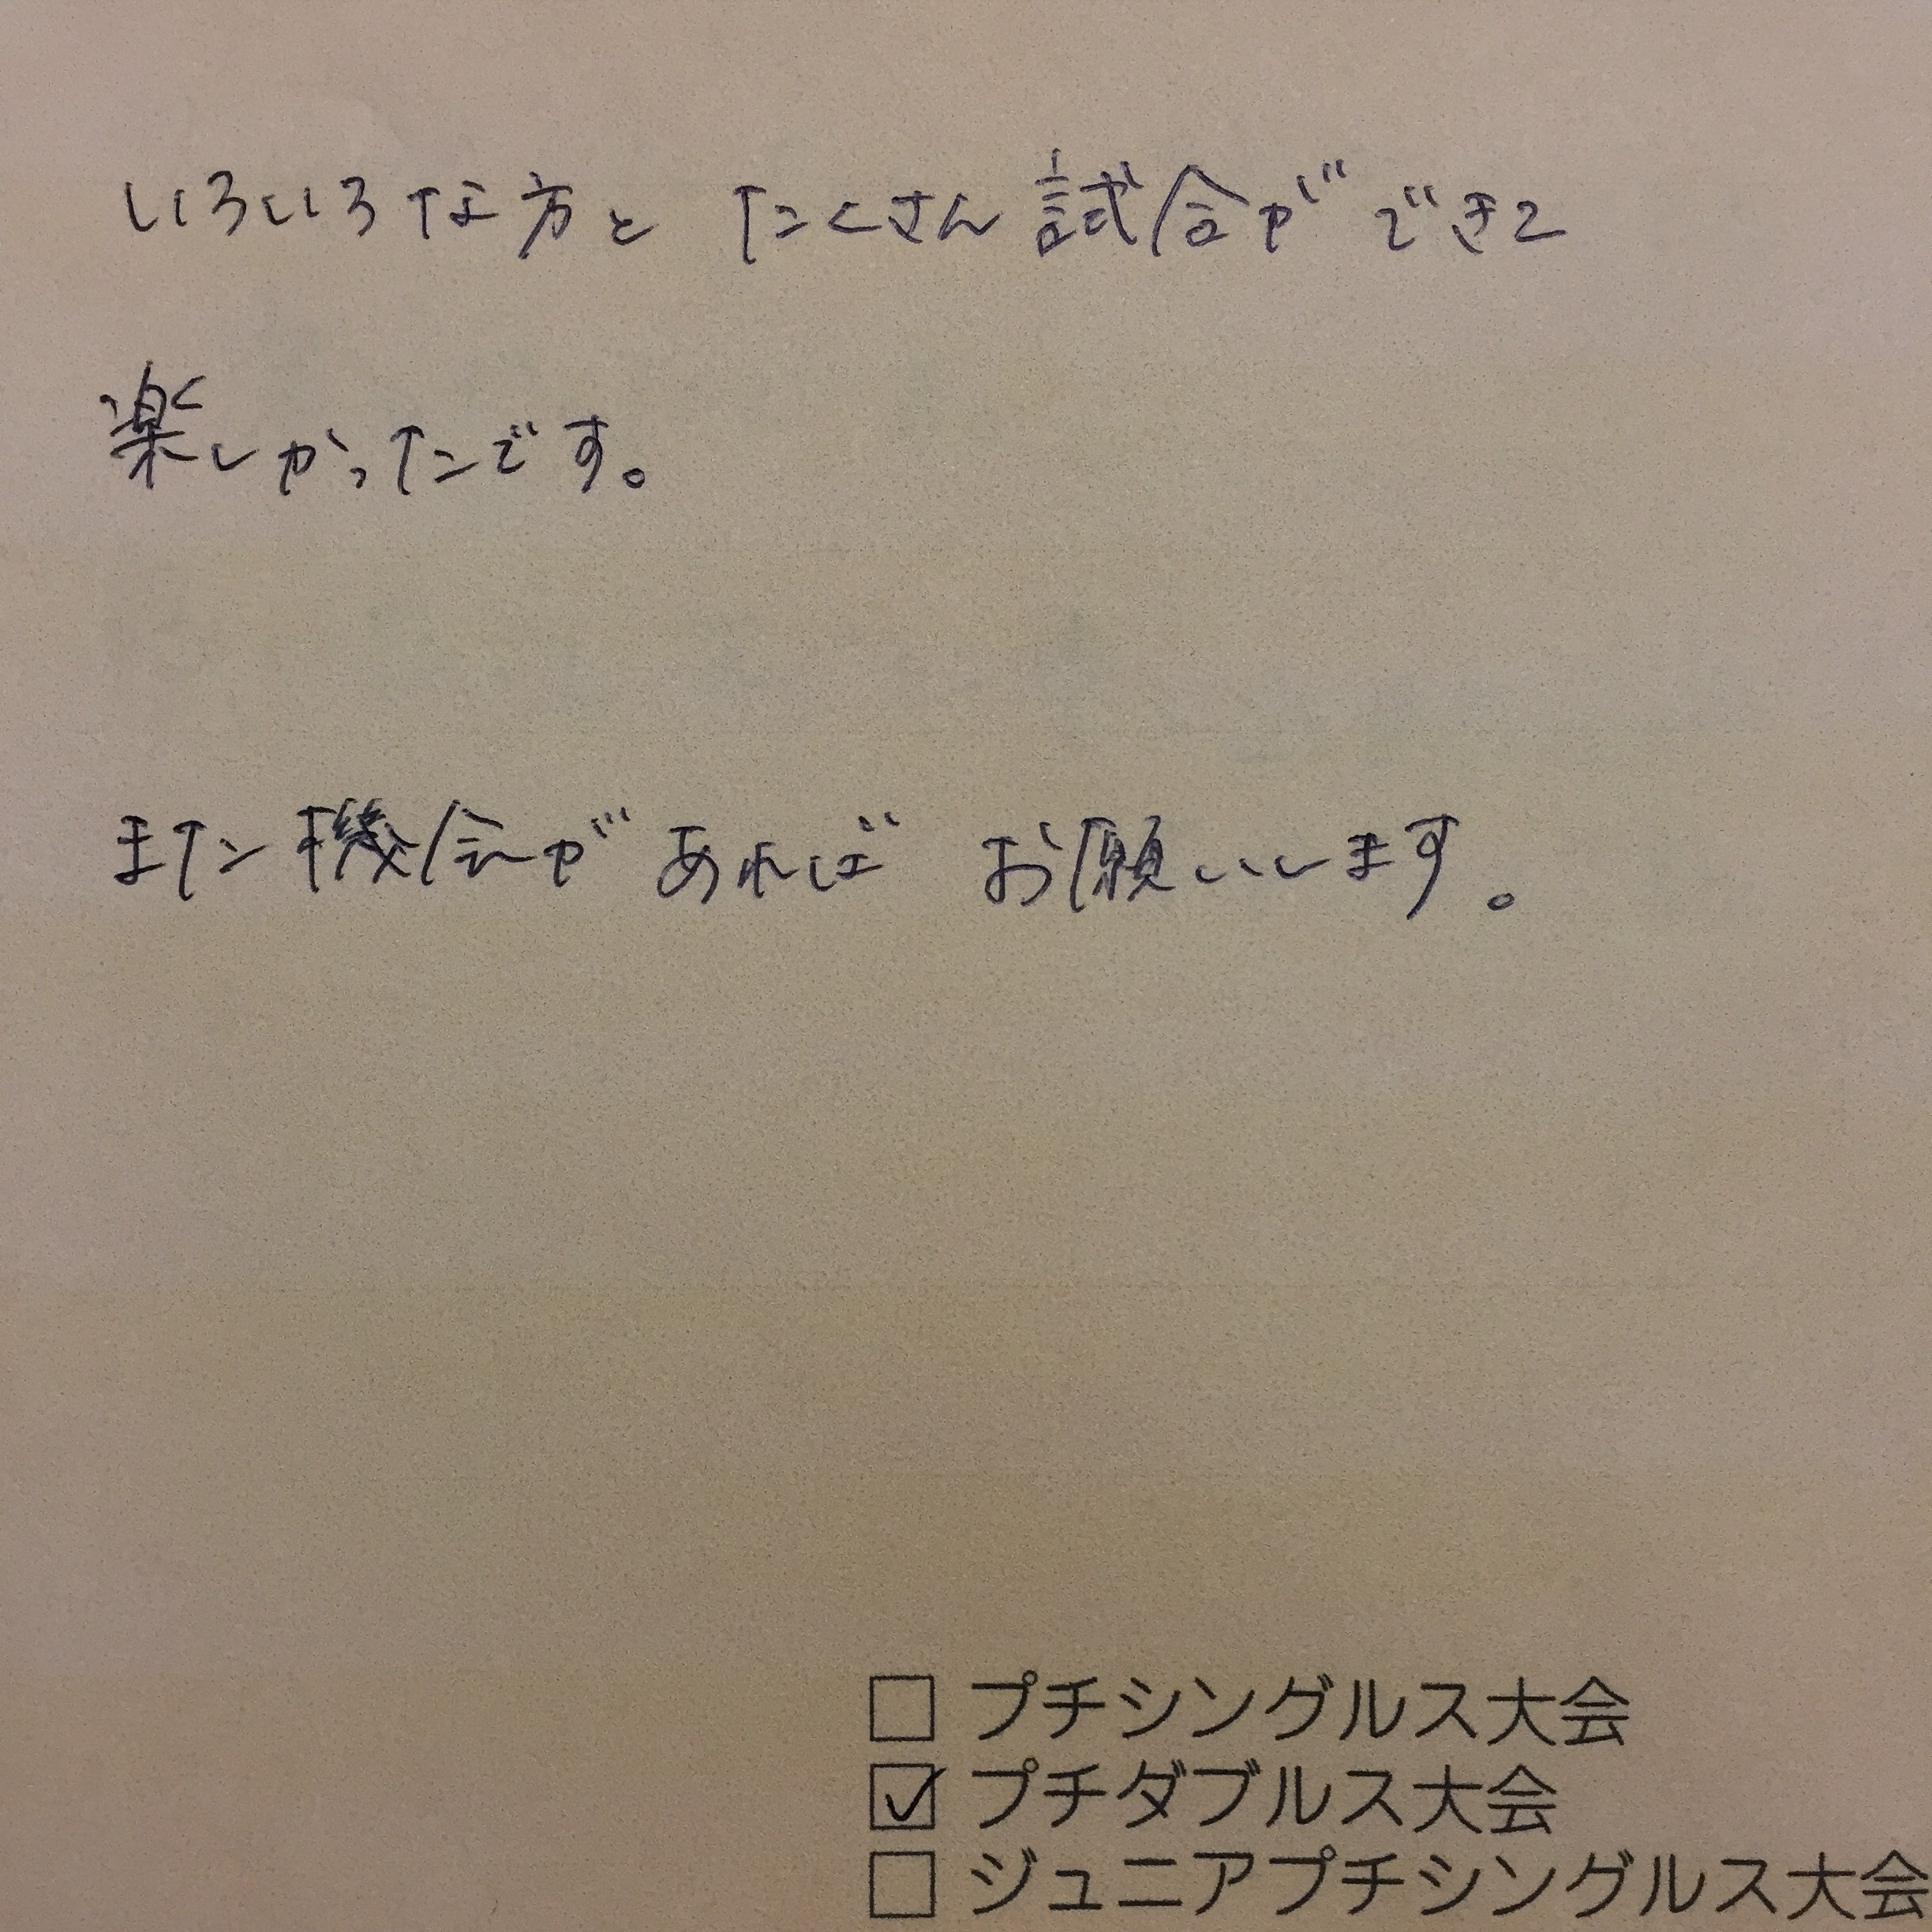 いろいろな方と たくさん試合ができて
楽しかったです。
また機会があれば お願いします。
□ プチシングルス大会
☑ プチダブルス大会
□ ジュニアプチシングルス大会